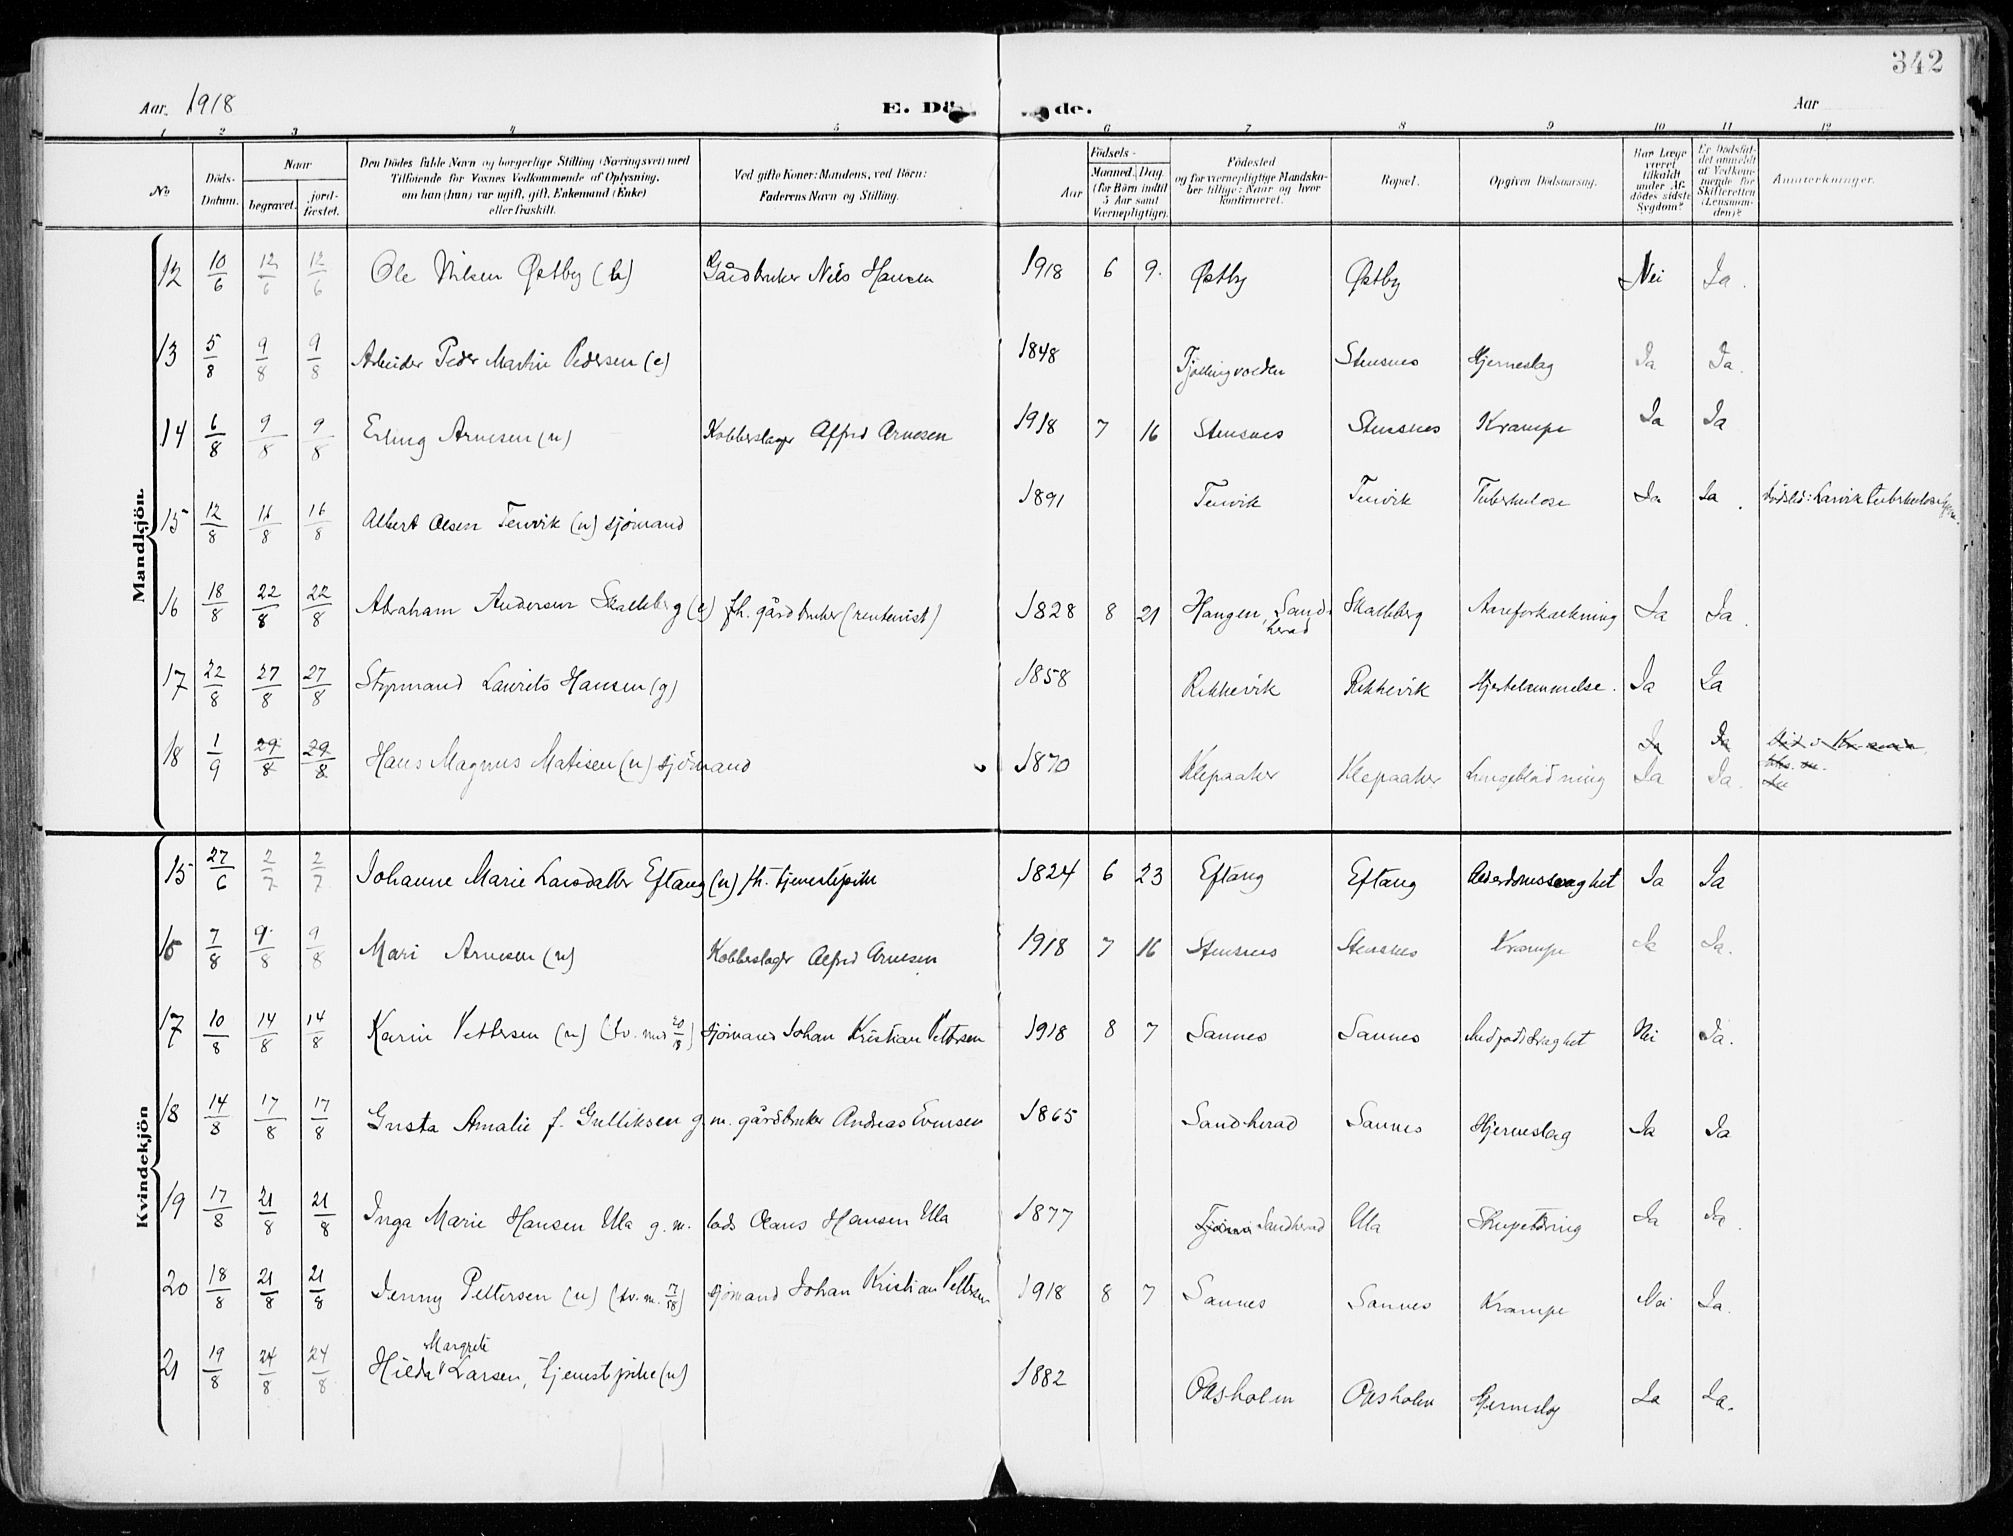 342
Aar. 1918 E. Dö de. Aar
1 2 3 4 5 6 7 8 9 10 11 12
No
Döds-Datum.
Naar
begravet.
jord-fæstet.
Den Dödes fulde Navn og borgerlige Stilling (Næringsvei) med
Tilföiende for Voxnes Vedkommende af Oplysning,
om han (hun) var ugift, gift, Enkemand (Enke)
eller fraskilt.
Ved gifte Koner: Mandens, ved Börn:
Faderens Navn og Stilling.
Födsels-
Aar
Maaned. Dag.
(for Börn indtil
5 Aar samt
Værnepligtige).
Födested
og for værnepligtige Mandskaber tillige: Naar og hvor konfirmeret.
Bopæl.
Opgiven Dödsaarsag.
Har Læge været tilkaldt under Afdödes sidste Sygdom?
Er Dödsfaldet anmeldt af Vedkommende for Skifteretten (Lensmanden)?
Anmærkninger.
Mandkjön.
12 10/6 12/6 12/6 Ole Nilsen Østby (b) Gårdbruker Nils Hansen 1918 6 9. Østby Østby Nei Ja.
13 5/8 9/8 9/8 Arbeider Peder Martin Pedersen (e) 1848 Tjøllingvolden Stensnes Hjerneslag Ja Ja.
14 6/8 9/8 9/8 Erling Arnesen (u) Kobberslager Alfred Arnesen 1918 7 16 Stensnes Stensnes Krampe Ja Ja
15 12/8 16/8 16/8 Albert Olsen Tenvik (u) sjømand 1891 Tenvik Tenvik Tuberkulose Ja Ja. dødsted: Larvik tuberkulosehjem.
16 18/8 22/8 22/8 Abraham Andersen Skalleberg (e) fh. gårdbruker (rentenist) 1828 8 21 Haugen, Sandeherad Skalleberg Aareforkalkning Ja Ja.
17 22/8 27/8 27/8 Styrmand Laurits Hansen (g) 1858 Rekkevik Rekkevik Hjertelammelse. Ja Ja
18 1/9 29/8 29/8 Hans Magnus Matisen (u) sjømand 1870 Klepaaker Klepaaker Lungeblødning Ja Ja Ja Ja.
Kvindekjön
15 27/6 2/7 2/7 Johanne Marie Larsdatter Eftang (u) fh. tjenestepike 1824 6 23 Eftang Eftang Alderdomssvaghet Ja Ja
16 7/8 9/8 9/8 Mari Arnesen (u) Kobberslager Alfred Arnesen 1918 7 16 Stensnes Stensnes Krampe Ja Ja.
17 10/8 14/8 14/8 Karin Pettersen (u) (tv. med 20/18) sjømand Johan Kristian Pettersen 1918 8 7 Sannes Sannes Medfødt svaghet Nei Ja.
18 14/8 17/8 17/8 Gusta Amalie f. Gulliksen g. m. gårdbruker Andreas Evensen 1865 Sandeherad Sannes Hjerneslag Ja Ja
19 17/8 21/8 21/8 Inga Marie Hansen Ula g. m. lods Olaus Hansen Ula 1877 Tjømø Sandeherad Ula Strupetæring Ja Ja.
20 18/8 21/8 21/8 Jenny Pettersen (u) (tv. m. 17/18) sjømand Johan Kristian Pettersen 1918 8 7 Sannes Sannes Krampe Nei Ja.
Margrete
21 19/8 24/8 24/8 Hilda Larsen, tjenestpike (u) 1882 Oksholm Oksholm Hjerneslag Ja Ja.